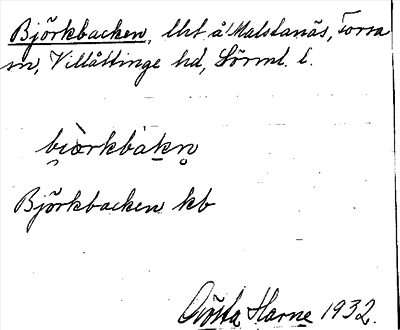 Björkbacken, lht å Malstanäs, Forssa
sn, Villåttinge hd, Sörml. l.
bi̯òrkbàkn̥
Björkbacken kb
Gösta Harne 1932.